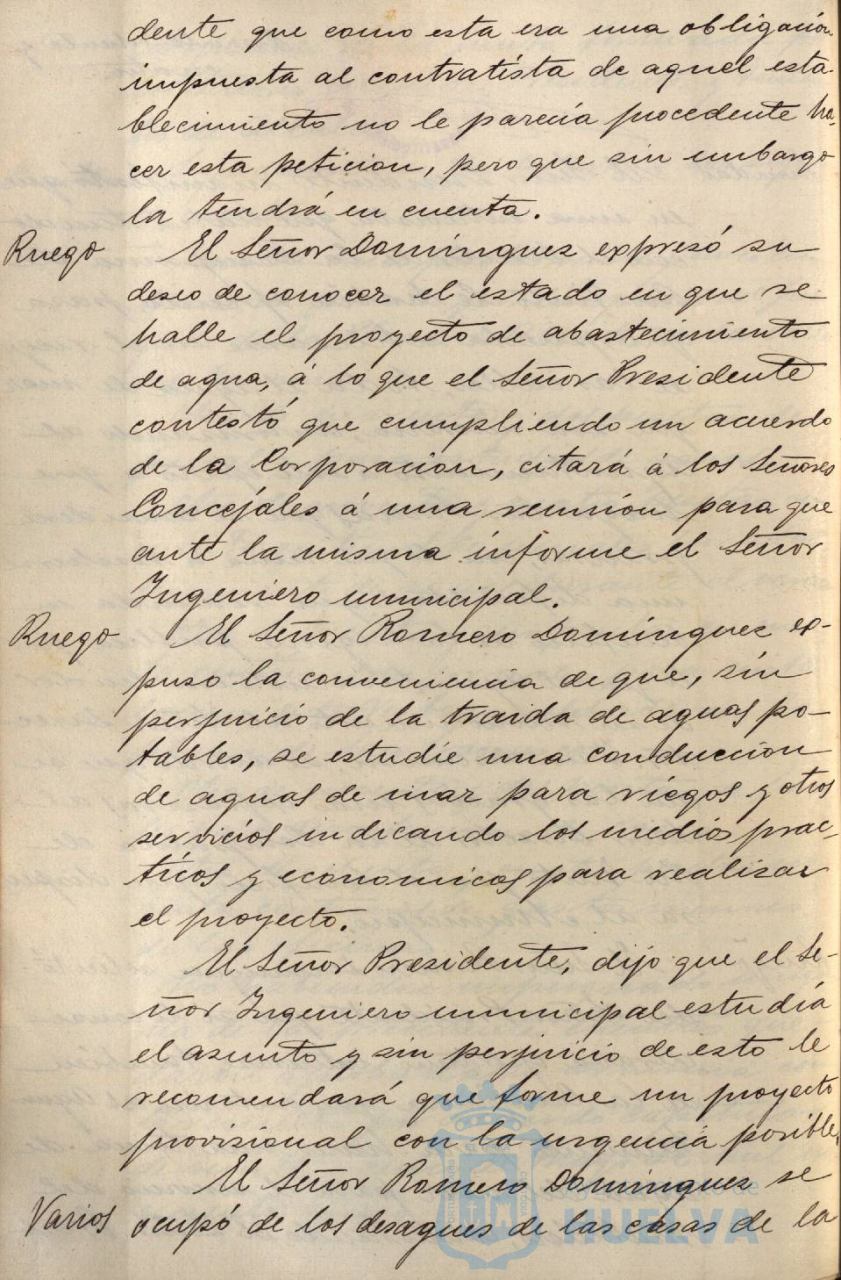 dente que como esta era una obligación
impuesta al contratista de aquel esta-
blecimiento no le parecía procedente ha-
cer esta peticion, pero que sin embargo
la tendrá en cuenta.
Ruego El Señor Domínguez expresó su
deseo de conocer el estado en que se
halle el proyecto de abastecimiento
de agua, á lo que el Señor Presidente
contestó que cumpliendo un acuerdo
de la Corporacion, citará á los Señores
Concejales á una reunión para que
ante la misma informe el Señor
Ingeniero municipal.
Ruego El Señor Romero Domínguez ex-
puso la conveniencia de que, sin
perjuicio de la traida de aguas po-
tables, se estudie una conduccion
de aguas de mar para riegos y otros
servicios indicando los medios prac-
ticos y economicos para realizar
el proyecto.
El Señor Presidente, dijo que el Se-
ñor Ingeniero municipal estudía
el asunto y sin perjuicio de esto le
recomendará que forme un proyecto
provisional con la urgencia posible.
El Señor Romero Domínguez se
Varios ocupó de los desagues de las casas de la
HUELVA